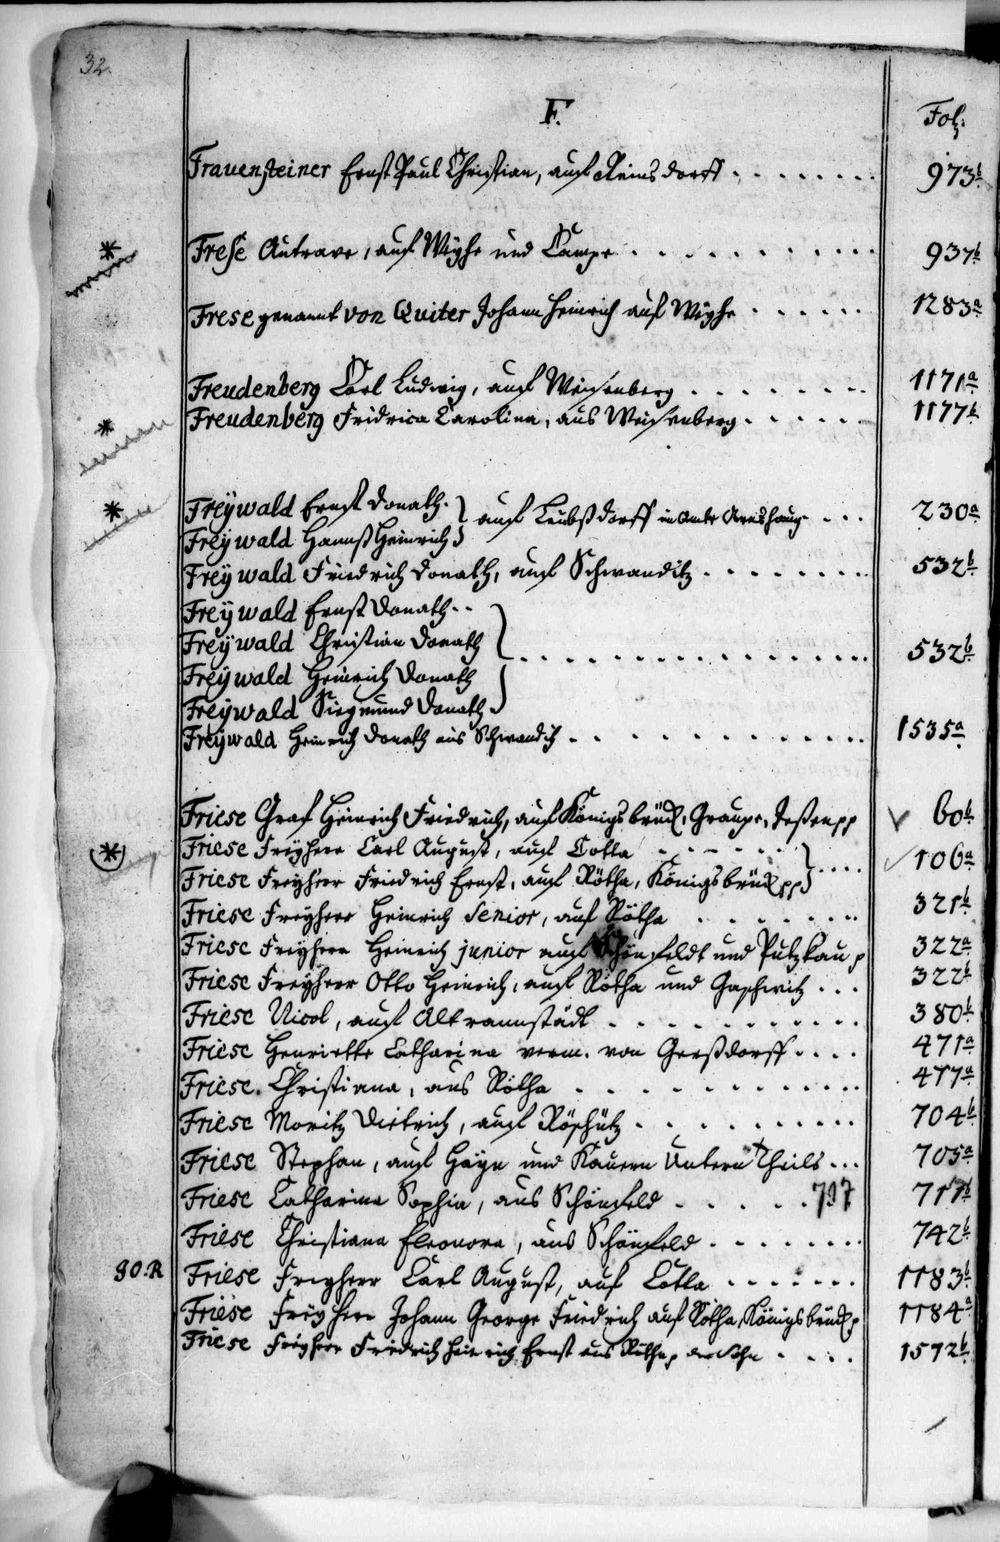 32.
F.
Fol:
Frauensteiner Ernst Paul Christian, auf Reinsdorff . . . . . . . . 973b
Frese Autrave, auf Weyhe und Campe . . . . . . . . . 937b
Frese genannt von Quiter Johann Heinrich auf Weyhe . . . . . . 1283a
Freudenberg Carl Ludwig, auf Weissenberg . . . . . . . 1171a
Freudenberg Fridrica Carolina, aus Weissenberg . . . . . . 1177b
Freywald Ernst Donath. } auf Leubßdorff im Amte Arnshaug . . . 230a
Freywald Hannß Heinrich }
Freywald Friedrich Donath, auf Schwanditz . . . . . . . . 532b
Freywald Ernst Donath . .
Freywald Christian Donath
532b
Freywald Heinrich Donath
Freywald Siegmund Donath .
Freywald Heinrich Donath aus Schwanditz . . . . . . . . . . . 1535a
Friese Graf Heinrich Friedrich, auf Königsbrück, Graupe, Jeßen pp 60b
Friese Freyherr Carl August, auf Cotta . . . . . . 106a
Friese Freyherr Friedrich Ernst, auf Rötha, Königsbrück pp
Friese Freyherr Heinrich Senior, auf Rötha . . . . . . . 321b
Friese Freyherr Heinrich junior auf Schönfeldt und Putzkau p 322a
Friese Freyherr Otto Heinrich, auf Rötha und Gaschwitz . . . 322b
Friese Nicol, auf Altrannstädt . . . . . . . . . . . 380b
Friese Henriette Catharina verm. von Gerßdorff . . . . 471a
Friese Christiana, aus Rötha . . . . . . . . . . . 477a
Friese Moritz Dietrich, auf Röschütz . . . . . . . . . 704b
Friese Stephan, auf Hayn und Kauern Untern Theils . . . 705a
Friese Catharina Sophia, aus Schönfeld . . . . . . 717 717b
Friese Christiana Eleonora, aus Schönfeld . . . . . . . . 742b
90.R Friese Freyherr Carl August, auf Cotta . . . . . . . 1183b
Friese Freyherr Johann George Friedrich auf Rötha, Königsbrück p 1184a
Friese Freyherr Friedrich Heinrich Ernst aus Rötha p der Sohn . . . . 1592b